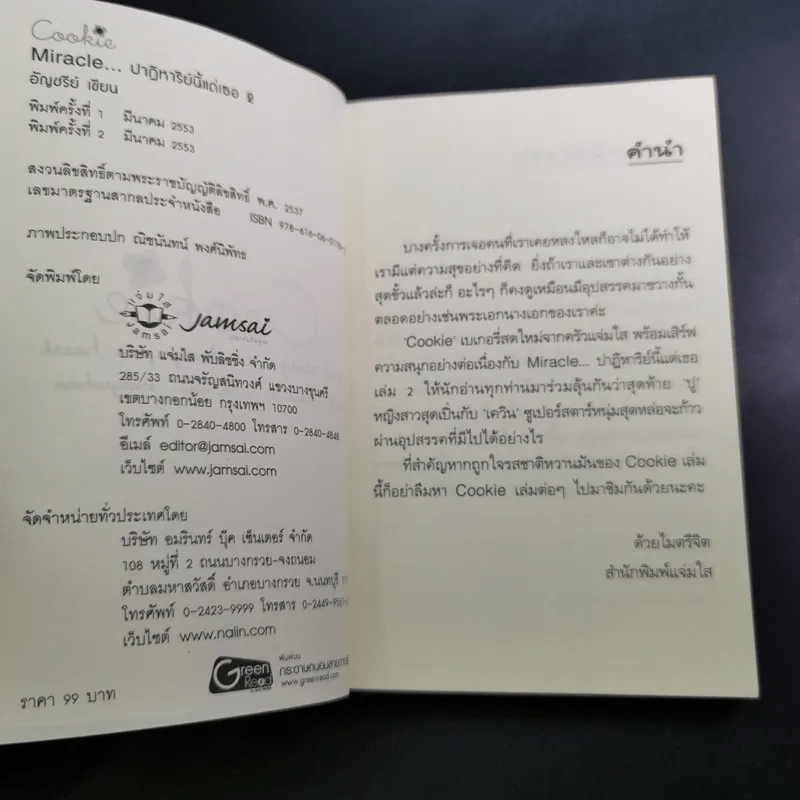 Cookie
Miracle... ปาฏิหาริย์นี้แด่เธอ 2
อัญชรีย์ เขียน
พิมพ์ครั้งที่ 1 มีนาคม 2553
พิมพ์ครั้งที่ 2 มีนาคม 2553
สงวนลิขสิทธิ์ตามพระราชบัญญัติลิขสิทธิ์ พ.ศ. 2537
เลขมาตรฐานสากลประจำหนังสือ ISBN
ภาพประกอบปก ณิชนันทน์ พงศ์นิพัทธ
จัดพิมพ์โดย
แจ่มใส
Jamsai
Jamsai
บริษัท แจ่มใส พับลิชชิ่ง จำกัด
285/33 ถนนจรัญสนิทวงศ์ แขวงบางขุนศรี
เขตบางกอกน้อย กรุงเทพฯ 10700
โทรศัพท์ 0-2840-4800 โทรสาร 0-2840-4848
อีเมล์ editor@jamsai.com
เว็บไซต์ www.jamsai.com
จัดจำหน่ายทั่วประเทศโดย
บริษัท อมรินทร์ บุ๊ค เซ็นเตอร์ จำกัด
108 หมู่ที่ 2 ถนนบางกรวย-จงถนอม
ตำบลมหาสวัสดิ์ อำเภอบางกรวย จ.นนทบุรี
โทรศัพท์ 0-2423-9999 โทรสาร
เว็บไซต์ www.naiin.com
Green Read
พิมพ์บน
กระดาษถนอมสายตา
www.greenread.com
ราคา 99 บาท
คำนำ
บางครั้งการเจอคนที่เราเคยหลงใหลก็อาจไม่ได้ทำให้
เรามีแต่ความสุขอย่างที่คิด ยิ่งถ้าเราและเขาต่างกันอย่าง
สุดขั้วแล้วล่ะก็ อะไรๆ ก็คงดูเหมือนมีอุปสรรคมาขวางกั้น
ตลอดอย่างเช่นพระเอกนางเอกของเราค่ะ
'Cookie' เบเกอรี่สดใหม่จากครัวแจ่มใส พร้อมเสิร์ฟ
ความสนุกอย่างต่อเนื่องกับ Miracle... ปาฏิหาริย์นี้แด่เธอ
เล่ม 2 ให้นักอ่านทุกท่านมาร่วมลุ้นกันว่าสุดท้าย 'ปู'
หญิงสาวสุดเปิ่นกับ 'เควิน' ซูเปอร์สตาร์หนุ่มสุดหล่อจะก้าว
ผ่านอุปสรรคที่มีไปได้อย่างไร
ที่สำคัญหากถูกใจรสชาติหวานมันของ Cookie เล่ม
นี้ก็อย่าลืมหา Cookie เล่มต่อๆ ไปมาชิมกันด้วยนะคะ
ด้วยไมตรีจิต
สำนักพิมพ์แจ่มใส